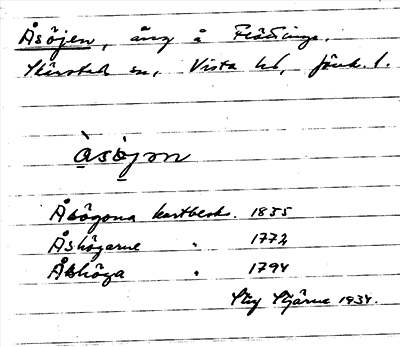 Åsöjen, äng å Flättinge.
Skärstad sn, Vista hd, Jönk. l.
àsöjen
Åsögona kartbeskr. 1855
Åshögarne " 1772
Åshöga " 1794
Stig Stjärne 1934.